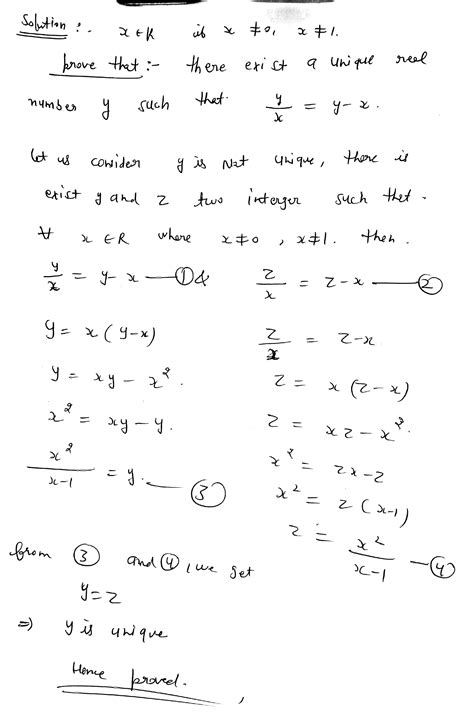 Solution :- x ∈ R if x ≠ 0, x ≠ 1.
prove that :- there exist a unique real
number y such that y/x = y - x.
let us consider y is Not unique, there is
exist y and z two interger such thet.
∀ x ∈ R where x ≠ 0, x ≠ 1. then.
y/x = y - x — ① & z/x = z - x — ②
y = x (y - x) z/x = z - x
y = xy - x². z = x (z - x)
x² = xy - y. z = xz - x².
x²/(x-1) = y. — ③ x² = zx - z
x² = z (x-1)
z = x²/(x-1) — ④
from ③ and ④, we get
y = z
⇒ y is unique
Hence proved.